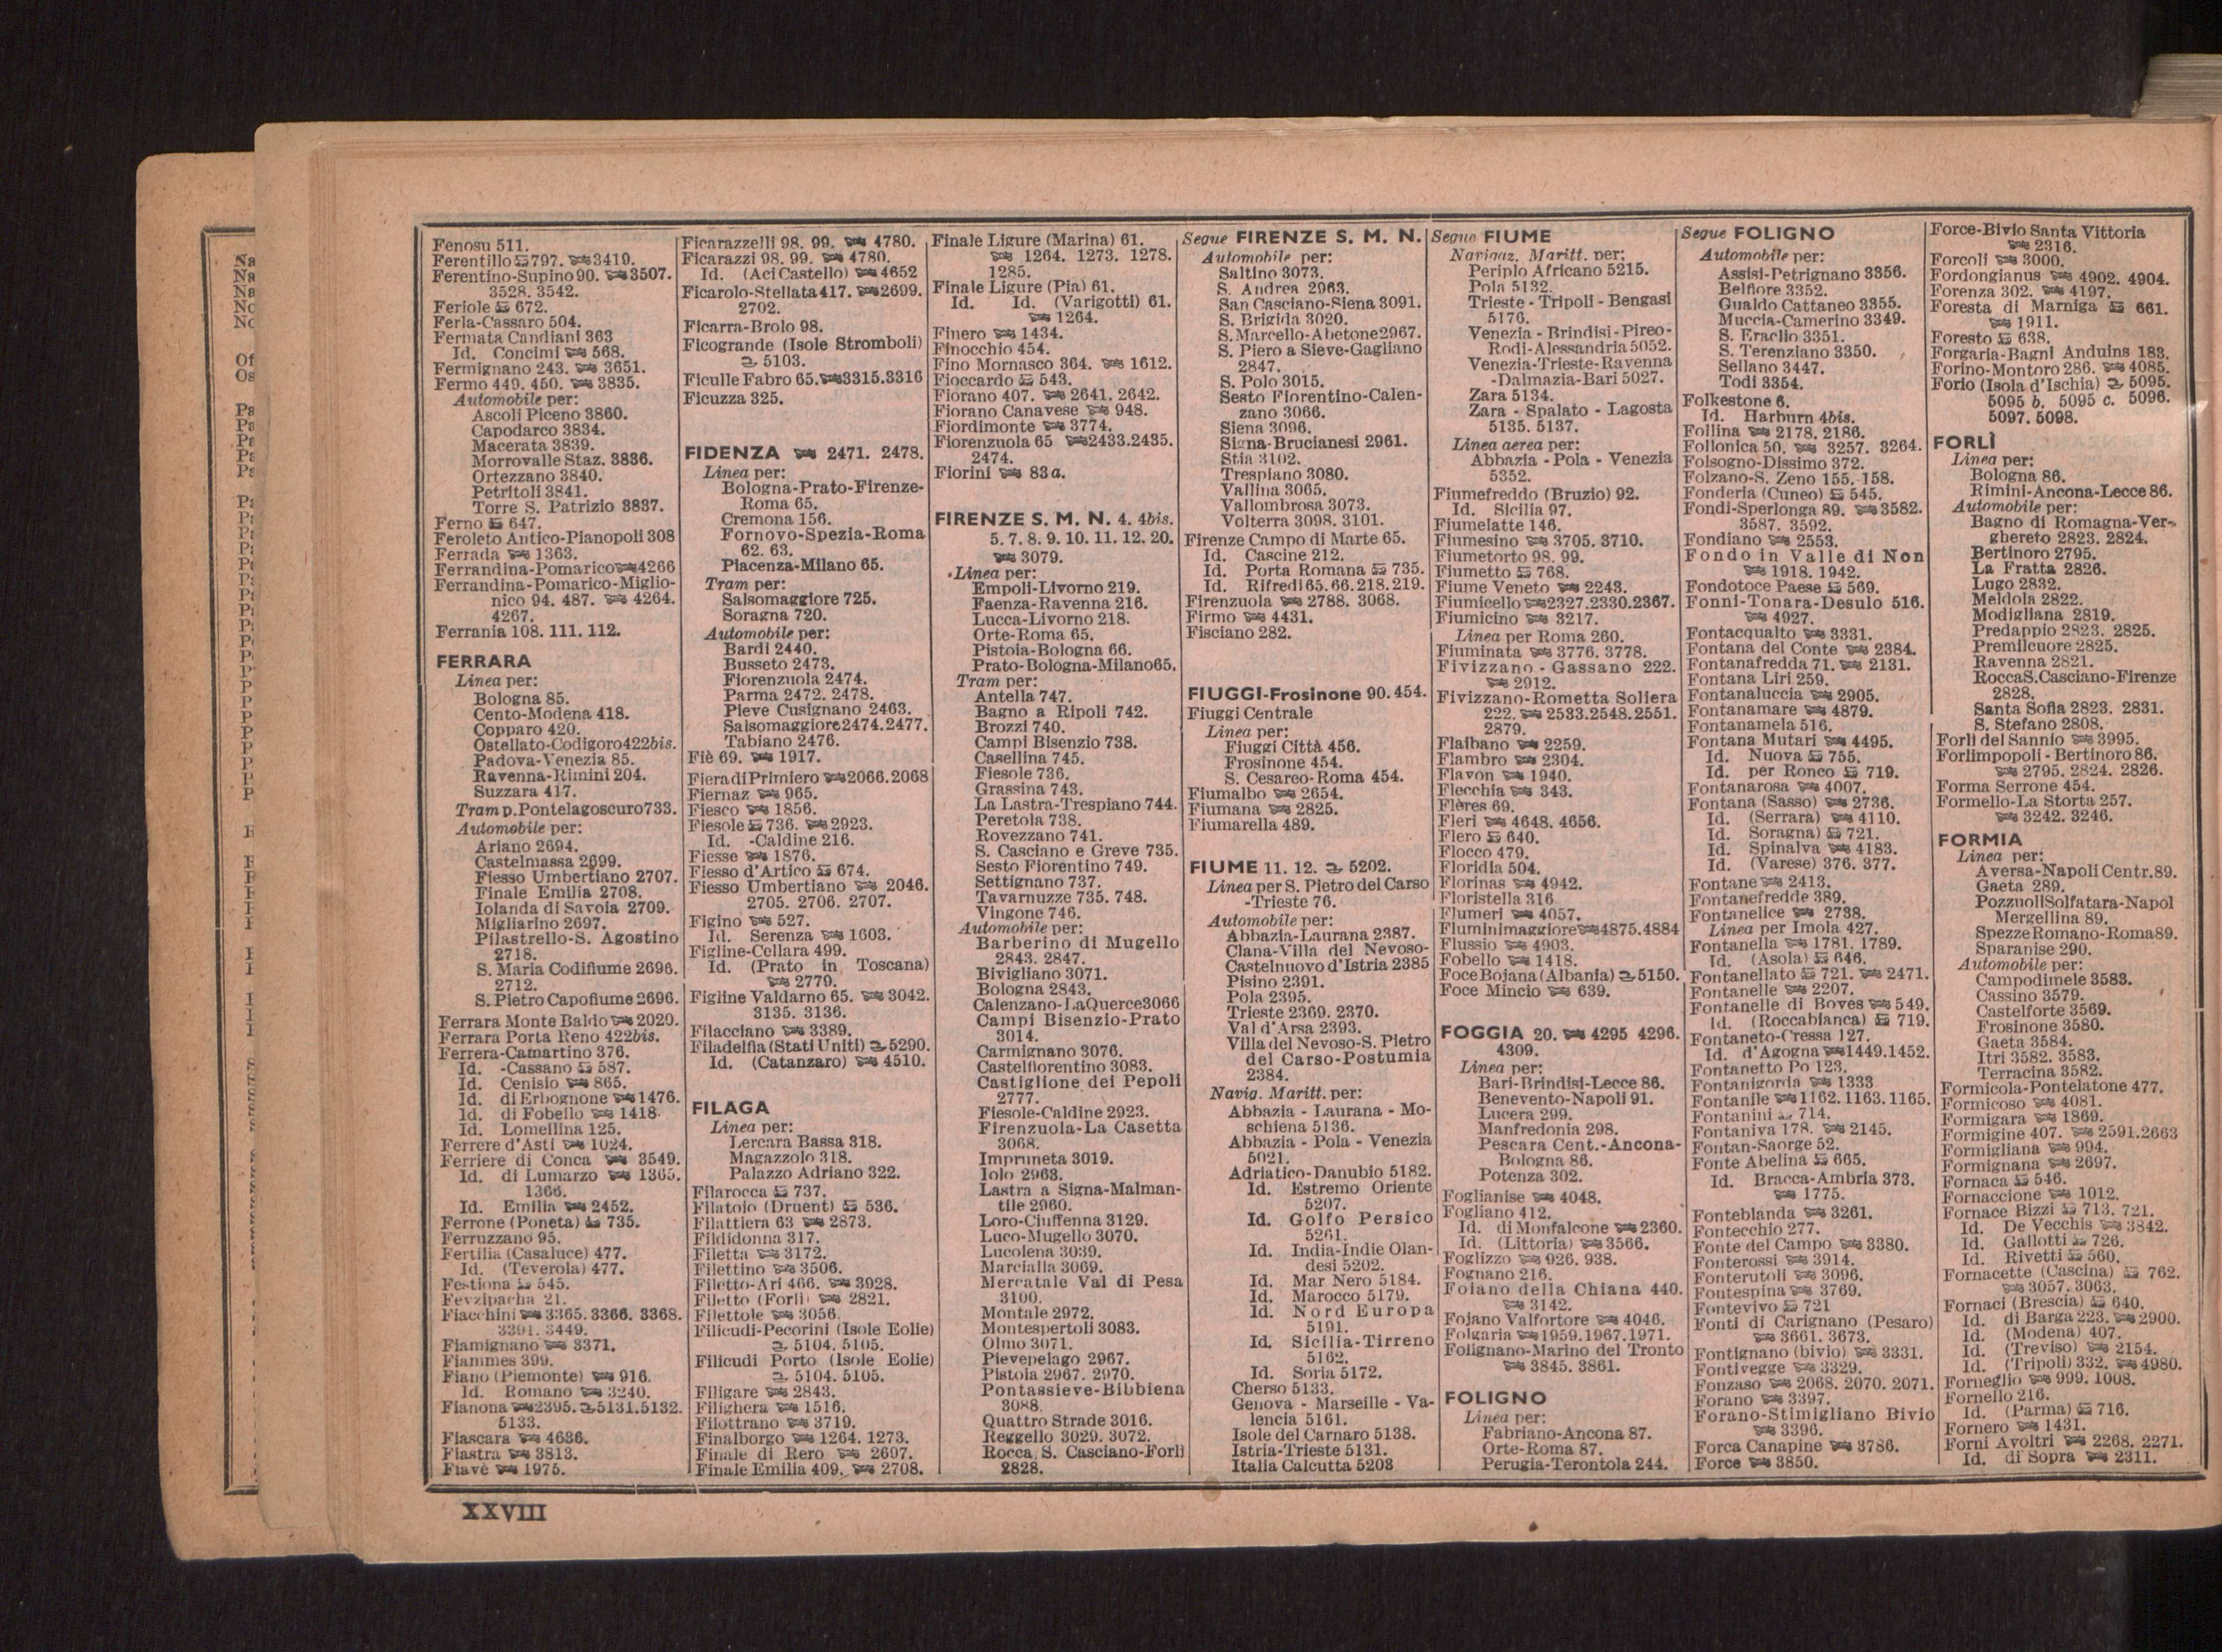 Fenosu 511.
Ferentillo 797. 3419.
Ferentino-Supino 90. 3507.
3528. 3542.
Feriole 672.
Ferla-Cassaro 504.
Fermata Candiani 363
Id. Concimi 568.
Fermignano 243. 3651.
Fermo 449. 450. 3835.
Automobile per:
Ascoli Piceno 3860.
Capodarco 3834.
Macerata 3839.
Morrovalle Staz. 3836.
Ortezzano 3840.
Petritoli 3841.
Torre S. Patrizio 3837.
Ferno 647.
Feroleto Antico-Pianopoli 308
Ferrada 1363.
Ferrandina-Pomarico 4266
Ferrandina-Pomarico-Miglio-
nico 94. 487. 4264.
4267.
Ferrania 108. 111. 112.
FERRARA
Linea per:
Bologna 85.
Cento-Modena 418.
Copparo 420.
Ostellato-Codigoro 422bis.
Padova-Venezia 85.
Ravenna-Rimini 204.
Suzzara 417.
Tram p. Pontelagoscuro 733.
Automobile per:
Ariano 2694.
Castelmassa 2699.
Fiesso Umbertiano 2707.
Finale Emilia 2708.
Iolanda di Savoia 2709.
Migliarino 2697.
Pilastrello-S. Agostino
2718.
S. Maria Codifiume 2696.
2712.
S. Pietro Capofiume 2696.
Ferrara Monte Baldo 2020.
Ferrara Porta Reno 422bis.
Ferrera-Camartino 376.
Id. -Cassano 587.
Id. Cenisio 865.
Id. di Erbognone 1476.
Id. di Fobello 1418.
Id. Lomellina 125.
Ferrere d'Asti 1024.
Ferriere di Conca 3549.
Id. di Lumarzo 1365.
1366.
Id. Emilia 2452.
Ferrone (Poneta) 735.
Ferruzzano 95.
Fertilia (Casaluce) 477.
Id. (Teverola) 477.
Festiona 545.
Fevzipacha 21.
Fiacchini 3365. 3366. 3368.
3391. 3449.
Fiamignano 3371.
Fiammes 399.
Fiano (Piemonte) 916.
Id. Romano 3240.
Fianona 2395. 5131. 5132.
5133.
Fiascara 4636.
Fiastra 3813.
Fiavè 1975.
Ficarazzelli 98. 99. 4780.
Ficarazzi 98. 99. 4780.
Id. (Aci Castello) 4652
Ficarolo-Stellata 417. 2699.
2702.
Ficarra-Brolo 98.
Ficogrande (Isole Stromboli)
5103.
Ficulle Fabro 65. 3315. 3316
Ficuzza 325.
FIDENZA 2471. 2478.
Linea per:
Bologna-Prato-Firenze-
Roma 65.
Cremona 156.
Fornovo-Spezia-Roma
62. 63.
Piacenza-Milano 65.
Tram per:
Salsomaggiore 725.
Soragna 720.
Automobile per:
Bardi 2440.
Busseto 2473.
Fiorenzuola 2474.
Parma 2472. 2478.
Pieve Cusignano 2463.
Salsomaggiore 2474. 2477.
Tabiano 2476.
Fiè 69. 1917.
Fiera di Primiero 2066. 2068
Fiernaz 965.
Fiesco 1856.
Fiesole 736. 2923.
Id. -Caldine 216.
Fiesse 1876.
Fiesso d'Artico 674.
Fiesso Umbertiano 2046.
2705. 2706. 2707.
Figino 527.
Id. Serenza 1603.
Figline-Cellara 499.
Id. (Prato in Toscana)
2779.
Figline Valdarno 65. 3042.
3135. 3136.
Filacciano 3389.
Filadelfia (Stati Uniti) 5290.
Id. (Catanzaro) 4510.
FILAGA
Linea per:
Lercara Bassa 318.
Magazzolo 318.
Palazzo Adriano 322.
Filarocca 737.
Filatoio (Druent) 536.
Filattiera 63 2873.
Fildidonna 317.
Filetta 3172.
Filettino 3506.
Filetto-Ari 466. 3928.
Filetto (Forlì) 2821.
Filettole 3056.
Filicudi-Pecorini (Isole Eolie)
5104. 5105.
Filicudi Porto (Isole Eolie)
5104. 5105.
Filigare 2843.
Filighera 1516.
Filottrano 3719.
Finalborgo 1264. 1273.
Finale di Rero 2697.
Finale Emilia 409. 2708.
Finale Ligure (Marina) 61.
1264. 1273. 1278.
1285.
Finale Ligure (Pia) 61.
Id. Id. (Varigotti) 61.
1264.
Finero 1434.
Finocchio 454.
Fino Mornasco 364. 1612.
Fioccardo 543.
Fiorano 407. 2641. 2642.
Fiorano Canavese 948.
Fiordimonte 3774.
Fiorenzuola 65 2433. 2435.
2474.
Fiorini 83a.
FIRENZE S. M. N. 4. 4bis.
5. 7. 8. 9. 10. 11. 12. 20.
3079.
Linea per:
Empoli-Livorno 219.
Faenza-Ravenna 216.
Lucca-Livorno 218.
Orte-Roma 65.
Pistoia-Bologna 66.
Prato-Bologna-Milano 65.
Tram per:
Antella 747.
Bagno a Ripoli 742.
Brozzi 740.
Campi Bisenzio 738.
Casellina 745.
Fiesole 736.
Grassina 743.
La Lastra-Trespiano 744.
Peretola 738.
Rovezzano 741.
S. Casciano e Greve 735.
Sesto Fiorentino 749.
Settignano 737.
Tavarnuzze 735. 748.
Vingone 746.
Automobile per:
Barberino di Mugello
2843. 2847.
Bivigliano 3071.
Bologna 2843.
Calenzano-La Querce 3066
Campi Bisenzio-Prato
3014.
Carmignano 3076.
Castelfiorentino 3083.
Castiglione dei Pepoli
2777.
Fiesole-Caldine 2923.
Firenzuola-La Casetta
3068.
Impruneta 3019.
Iolo 2963.
Lastra a Signa-Malman-
tile 2960.
Loro-Ciuffenna 3129.
Luco-Mugello 3070.
Lucolena 3039.
Marcialla 3069.
Mercatale Val di Pesa
3100.
Montale 2972.
Montespertoli 3083.
Olmo 3071.
Pievepelago 2967.
Pistola 2967. 2970.
Pontassieve-Bibbiena
3088.
Quattro Strade 3016.
Reggello 3029. 3072.
Rocca S. Casciano-Forlì
2828.
Segue FIRENZE S. M. N.
Automobile per:
Saltino 3073.
S. Andrea 2963.
San Casciano-Siena 3091.
S. Brigida 3020.
S. Marcello-Abetone 2967.
S. Piero a Sieve-Gagliano
2847.
S. Polo 3015.
Sesto Fiorentino-Calen-
zano 3066.
Siena 3096.
Signa-Brucianesi 2961.
Stia 3102.
Trespiano 3080.
Vallina 3065.
Vallombrosa 3073.
Volterra 3098. 3101.
Firenze Campo di Marte 65.
Id. Cascine 212.
Id. Porta Romana 735.
Id. Rifredi 65. 66. 218. 219.
Firenzuola 2788. 3068.
Firmo 4431.
Fisciano 282.
FIUGGI-Frosinone 90. 454.
Fiuggi Centrale
Linea per:
Fiuggi Città 456.
Frosinone 454.
S. Cesareo-Roma 454.
Fiumalbo 2654.
Fiumana 2825.
Fiumarella 489.
FIUME 11. 12. 5202.
Linea per S. Pietro del Carso
-Trieste 76.
Automobile per:
Abbazia-Laurana 2387.
Clana-Villa del Nevoso-
Castelnuovo d'Istria 2385
Pisino 2391.
Pola 2395.
Trieste 2369. 2370.
Val d'Arsa 2393.
Villa del Nevoso-S. Pietro
del Carso-Postumia
2384.
Navig. Maritt. per:
Abbazia - Laurana - Mo-
schiena 5136.
Abbazia - Pola - Venezia
5021.
Adriatico-Danubio 5182.
Id. Estremo Oriente
5207.
Id. Golfo Persico
5261.
Id. India-Indie Olan-
desi 5202.
Id. Mar Nero 5184.
Id. Marocco 5179.
Id. Nord Europa
5191.
Id. Sicilia-Tirreno
5162.
Id. Soria 5172.
Cherso 5133.
Genova - Marseille - Va-
lencia 5161.
Isole del Carnaro 5138.
Istria-Trieste 5131.
Italia Calcutta 5203
Segue FIUME
Navigaz. Maritt. per:
Periplo Africano 5215.
Pola 5132.
Trieste - Tripoli - Bengasi
5176.
Venezia - Brindisi - Pireo-
Rodi-Alessandria 5052.
Venezia-Trieste-Ravenna
-Dalmazia-Bari 5027.
Zara 5134.
Zara - Spalato - Lagosta
5135. 5137.
Linea aerea per:
Abbazia - Pola - Venezia
5352.
Fiumefreddo (Bruzio) 92.
Id. Sicilia 97.
Fiumelatte 146.
Fiumesino 3705. 3710.
Fiumetorto 98. 99.
Fiumetto 768.
Fiume Veneto 2243.
Fiumicello 2327. 2330. 2367.
Fiumicino 3217.
Linea per Roma 260.
Fiuminata 3776. 3778.
Fivizzano - Gassano 222.
2912.
Fivizzano-Rometta Soliera
222. 2533. 2548. 2551.
2879.
Flaibano 2259.
Flambro 2304.
Flavon 1940.
Flecchia 343.
Flères 69.
Fleri 4648. 4656.
Flero 640.
Flocco 479.
Floridia 504.
Florinas 4942.
Floristella 316
Flumeri 4057.
Fluminimaggiore 4875. 4884
Flussio 4903.
Fobello 1418.
Foce Bojana (Albania) 5150.
Foce Mincio 639.
FOGGIA 20. 4295 4296.
4309.
Linea per:
Bari-Brindisi-Lecce 86.
Benevento-Napoli 91.
Lucera 299.
Manfredonia 298.
Pescara Cent.-Ancona-
Bologna 86.
Potenza 302.
Foglianise 4048.
Fogliano 412.
Id. di Monfalcone 2360.
Id. (Littoria) 3566.
Foglizzo 926. 938.
Fognano 216.
Foiano della Chiana 440.
3142.
Fojano Valfortore 4046.
Folgaria 1959. 1967. 1971.
Folignano-Marino del Tronto
3845. 3861.
FOLIGNO
Linea per:
Fabriano-Ancona 87.
Orte-Roma 87.
Perugia-Terontola 244.
Segue FOLIGNO
Automobile per:
Assisi-Petrignano 3356.
Belfiore 3352.
Gualdo Cattaneo 3355.
Muccia-Camerino 3349.
S. Eraclio 3351.
S. Terenziano 3350.
Sellano 3447.
Todi 3354.
Folkestone 6.
Id. Harburn 4bis.
Follina 2178. 2186.
Follonica 50. 3257. 3264.
Folsogno-Dissimo 372.
Folzano-S. Zeno 155. 158.
Fonderia (Cuneo) 545.
Fondi-Sperlonga 89. 3582.
3587. 3592.
Fondiano 2553.
Fondo in Valle di Non
1918. 1942.
Fondotoce Paese 569.
Fonni-Tonara-Desulo 516.
4927.
Fontacqualto 3331.
Fontana del Conte 2384.
Fontanafredda 71. 2131.
Fontana Liri 259.
Fontanaluccia 2905.
Fontanamare 4879.
Fontanamela 516.
Fontana Mutari 4495.
Id. Nuova 755.
Id. per Ronco 719.
Fontanarosa 4007.
Fontana (Sasso) 2736.
Id. (Serrara) 4110.
Id. Soragna) 721.
Id. Spinalva 4183.
Id. (Varese) 376. 377.
Fontane 2413.
Fontanefredde 389.
Fontanelice 2738.
Linea per Imola 427.
Fontanella 1781. 1789.
Id. (Asola) 646.
Fontanellato 721. 2471.
Fontanelle 2207.
Fontanelle di Boves 549.
Id. (Roccabianca) 719.
Fontaneto-Cressa 127.
Id. d'Agogna 1449. 1452.
Fontanetto Po 123.
Fontanigorda 1333
Fontanile 1162. 1163. 1165.
Fontanini 714.
Fontaniva 178. 2145.
Fontan-Saorge 52.
Fonte Abelina 665.
Id. Bracca-Ambria 373.
1775.
Fonteblanda 3261.
Fontecchio 277.
Fonte del Campo 3380.
Fonterossi 3914.
Fonterutoli 3096.
Fontespina 3769.
Fontevivo 721
Fonti di Carignano (Pesaro)
3661. 3673.
Fontignano (bivio) 3331.
Fontivegge 3329.
Fonzaso 2068. 2070. 2071.
Forano 3397.
Forano-Stimigliano Bivio
3396.
Forca Canapine 3786.
Force 3850.
Force-Bivio Santa Vittoria
2316.
Forcoli 3000.
Fordongianus 4902. 4904.
Forenza 302. 4197.
Foresta di Marniga 661.
1911.
Foresto 638.
Forgaria-Bagni Anduins 183.
Forino-Montoro 286. 4085.
Forio (Isola d'Ischia) 5095.
5095 b. 5095 c. 5096.
5097. 5098.
FORLÌ
Linea per:
Bologna 86.
Rimini-Ancona-Lecce 86.
Automobile per:
Bagno di Romagna-Ver-
ghereto 2823. 2824.
Bertinoro 2795.
La Fratta 2826.
Lugo 2832.
Meldola 2822.
Modigliana 2819.
Predappio 2823. 2825.
Premilcuore 2825.
Ravenna 2821.
Rocca S. Casciano-Firenze
2828.
Santa Sofia 2823. 2831.
S. Stefano 2808.
Forlì del Sannio 3995.
Forlimpopoli - Bertinoro 86.
2795. 2824. 2826.
Forma Serrone 454.
Formello-La Storta 257.
3242. 3246.
FORMIA
Linea per:
Aversa-Napoli Centr. 89.
Gaeta 289.
Pozzuoli Solfatara-Napol
Mergellina 89.
Spezze Romano-Roma 89.
Sparanise 290.
Automobile per:
Campodimele 3583.
Cassino 3579.
Castelforte 3569.
Frosinone 3580.
Gaeta 3584.
Itri 3582. 3583.
Terracina 3582.
Formicola-Pontelatone 477.
Formicoso 4081.
Formigara 1869.
Formigine 407. 2591. 2663
Formigliana 994.
Formignana 2697.
Fornaca 546.
Fornaccione 1012.
Fornace Bizzi 713. 721.
Id. De Vecchis 3842.
Id. Gallotti 726.
Id. Rivetti 560.
Fornacette (Cascina) 762.
3057. 3063.
Fornaci (Brescia) 640.
Id. di Barga 223. 2900.
Id. (Modena) 407.
Id. (Treviso) 2154.
Id. (Tripoli) 332. 4980.
Forneglio 999. 1008.
Fornello 216.
Id. (Parma) 716.
Fornero 1431.
Forni Avoltri 2268. 2271.
Id. di Sopra 2311.
XXVIII